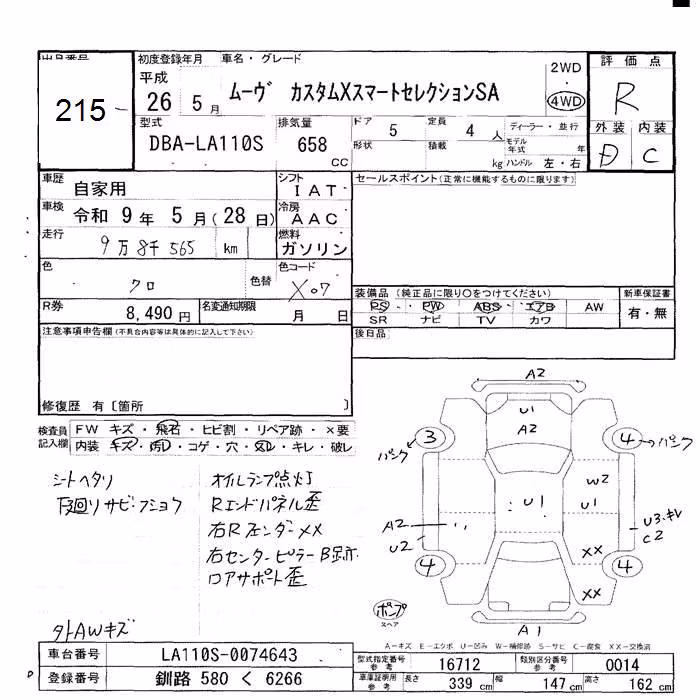 出品番号 初度登録年月 車名・グレード 評価点
215 平成 26 5月 ムーヴ カスタムXスマートセレクションSA 2WD 4WD R
型式 排気量 ドア 定員 ディーラー・並行 外装 内装
DBA-LA110S 658 CC 5 4人 D C
形状 積載 kg モデル年式 年 ハンドル 左・右
車歴 自家用 シフト IAT セールスポイント(正常に機能するものに限ります)
車検 令和 9年 5月(28日) 冷房 AAC
走行 9万8千565 km 燃料 ガソリン
色 クロ 色替 色コード X07
装備品(純正品に限り○をつけてください) 新車保証書
R券 8,490円 名変通知期限 月 日
PS・PW・ABS・エアB AW 有・無
SR ナビ TV カワ
注意事項申告欄(不具合内容等は具体的に記入して下さい) 後日品
修復歴 有〔箇所 〕
検査員記入欄 FW キズ・飛石・ヒビ割・リペア跡・×要
内装 キズ・汚レ・コゲ・穴・スレ・キレ・破レ
シートヘタリ オイルランプ点灯
下廻りサビ・フショク Rエンドパネル歪
右Rフェンダー××
右センターピラー
ロアサポート歪
外AWキズ
A2
U1
A2
3 パンク
4 パンク
W2
U1
U1
A2
U2
U3・キレ
C2
××
4
4
××
ポンプ
スペア
A1
A-キズ E-エクボ U-凹み W-補修跡 S-サビ C-腐食 XX-交換済
車台番号 LA110S-0074643
型式指定番号 参考 16712 類別区分番号 参考 0014
登録番号 釧路 580 く 6266
車庫証明用 参考 長さ 339 cm 幅 147 cm 高さ 162 cm